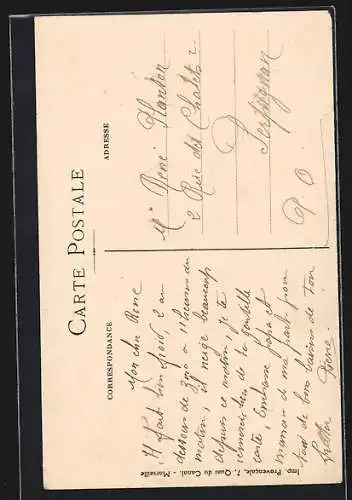 CARTE POSTALE
CORRESPONDANCE
ADRESSE
Mon cher René
Il fait bon froid, 2 au
dessous de zéro à 11 heures du
matin, il neige beaucoup
depuis ce matin, je te
remercie de ta gentille
carte, Embrasse papa et
maman de ma part pour
toi de bons baisers de ton
René.
Mr René
2 Rue des Chalets
Perpignan
P. O.
Imp. Provençale, 7, Quai du Canal - Marseille